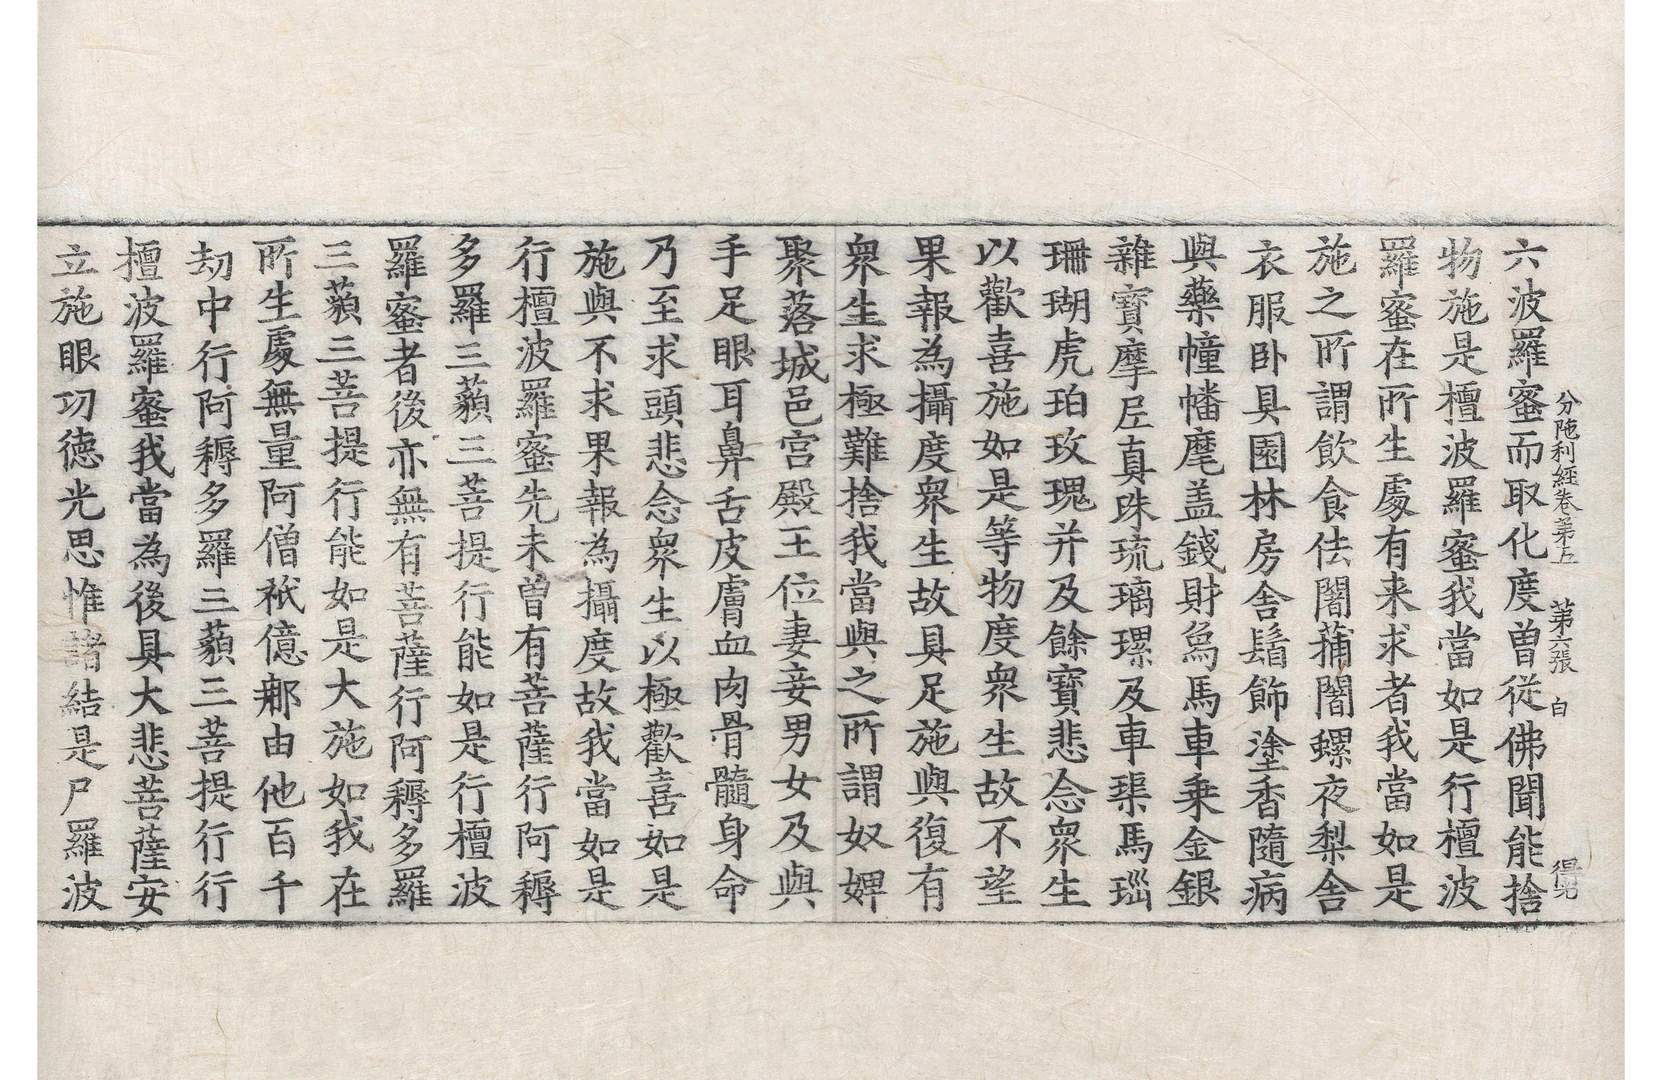 分陁利經卷第五 第六張 白
六波羅蜜而取化度曾從佛聞能捨
物施是檀波羅蜜我當如是行檀波
羅蜜在所生處有来求者我當如是
施之所謂飲食佉闍蒱闍螺夜梨舍
衣服卧具園林房舍鬚飾塗香隨病
與藥幢幡麾盖錢財烏馬車乗金銀
雜寶摩尼真珠琉璃瑮及車渠馬瑙
珊瑚虎珀玫瑰并及餘寶悲念衆生
以歡喜施如是等物度衆生故不望
果報為攝度衆生故具足施與復有
衆生求極難捨我當與之所謂奴婢
聚落城邑宫殿王位妻妾男女及與
手足眼耳鼻舌皮膚血肉骨髓身命
乃至求頭悲念衆生以極歡喜如是
施與不求果報為攝度故我當如是
行檀波羅蜜先未曾有菩薩行阿耨
多羅三藐三菩提行能如是行檀波
羅蜜者後亦無有菩薩行阿耨多羅
三藐三菩提行能如是大施如我在
所生處無量阿僧祇億那由他百千
劫中行阿耨多羅三藐三菩提行行
檀波羅蜜我當為後具大悲菩薩安
立施眼功德光思惟諸結是尸羅波